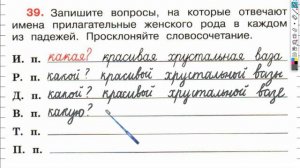 39. Запишите вопросы, на которые отвечают
имена прилагательные женского рода в каждом
из падежей. Просклоняйте словосочетание.
И. п. какая? красивая хрустальная ваза
Р. п. какой? красивой хрустальной вазы
Д. п. какой? красивой хрустальной вазе
В. п. какую?
Т. п.
П. п.